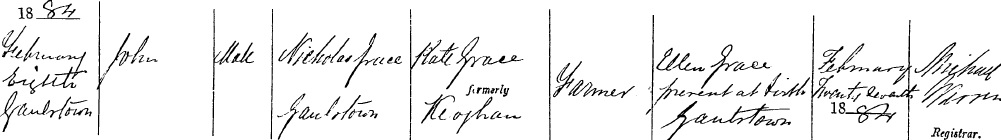 1884
February
Eighth
Gaulstown
John
Male
Nicholas Grace
Gaulstown
Kate Grace
formerly
Keoghan
Farmer
Ellen Grace
present at birth
Gaulstown
February
Twenty Seventh
1884
Michael
Registrar.